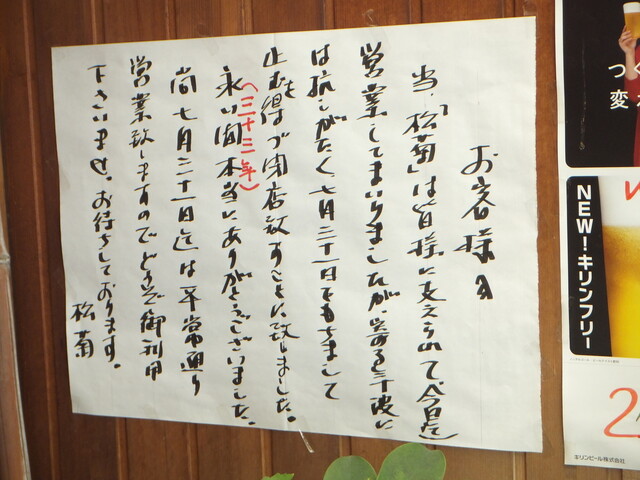 お客様へ
当、「松菊」は皆様に支えられて、今日迄
営業してまいりましたが、寄る年波に
は抗しがたく七月三十一日でもちまして
止むを得づ閉店致すことに致しました。
(三十三年)
永い間本当にありがとうございました。
尚七月三十一日迄は平常通り
営業致しますのでどうぞ御利用
下さいませ。お待ちしております。
松菊
つく
変
NEW!キリンフリー
2
キリンビール株式会社